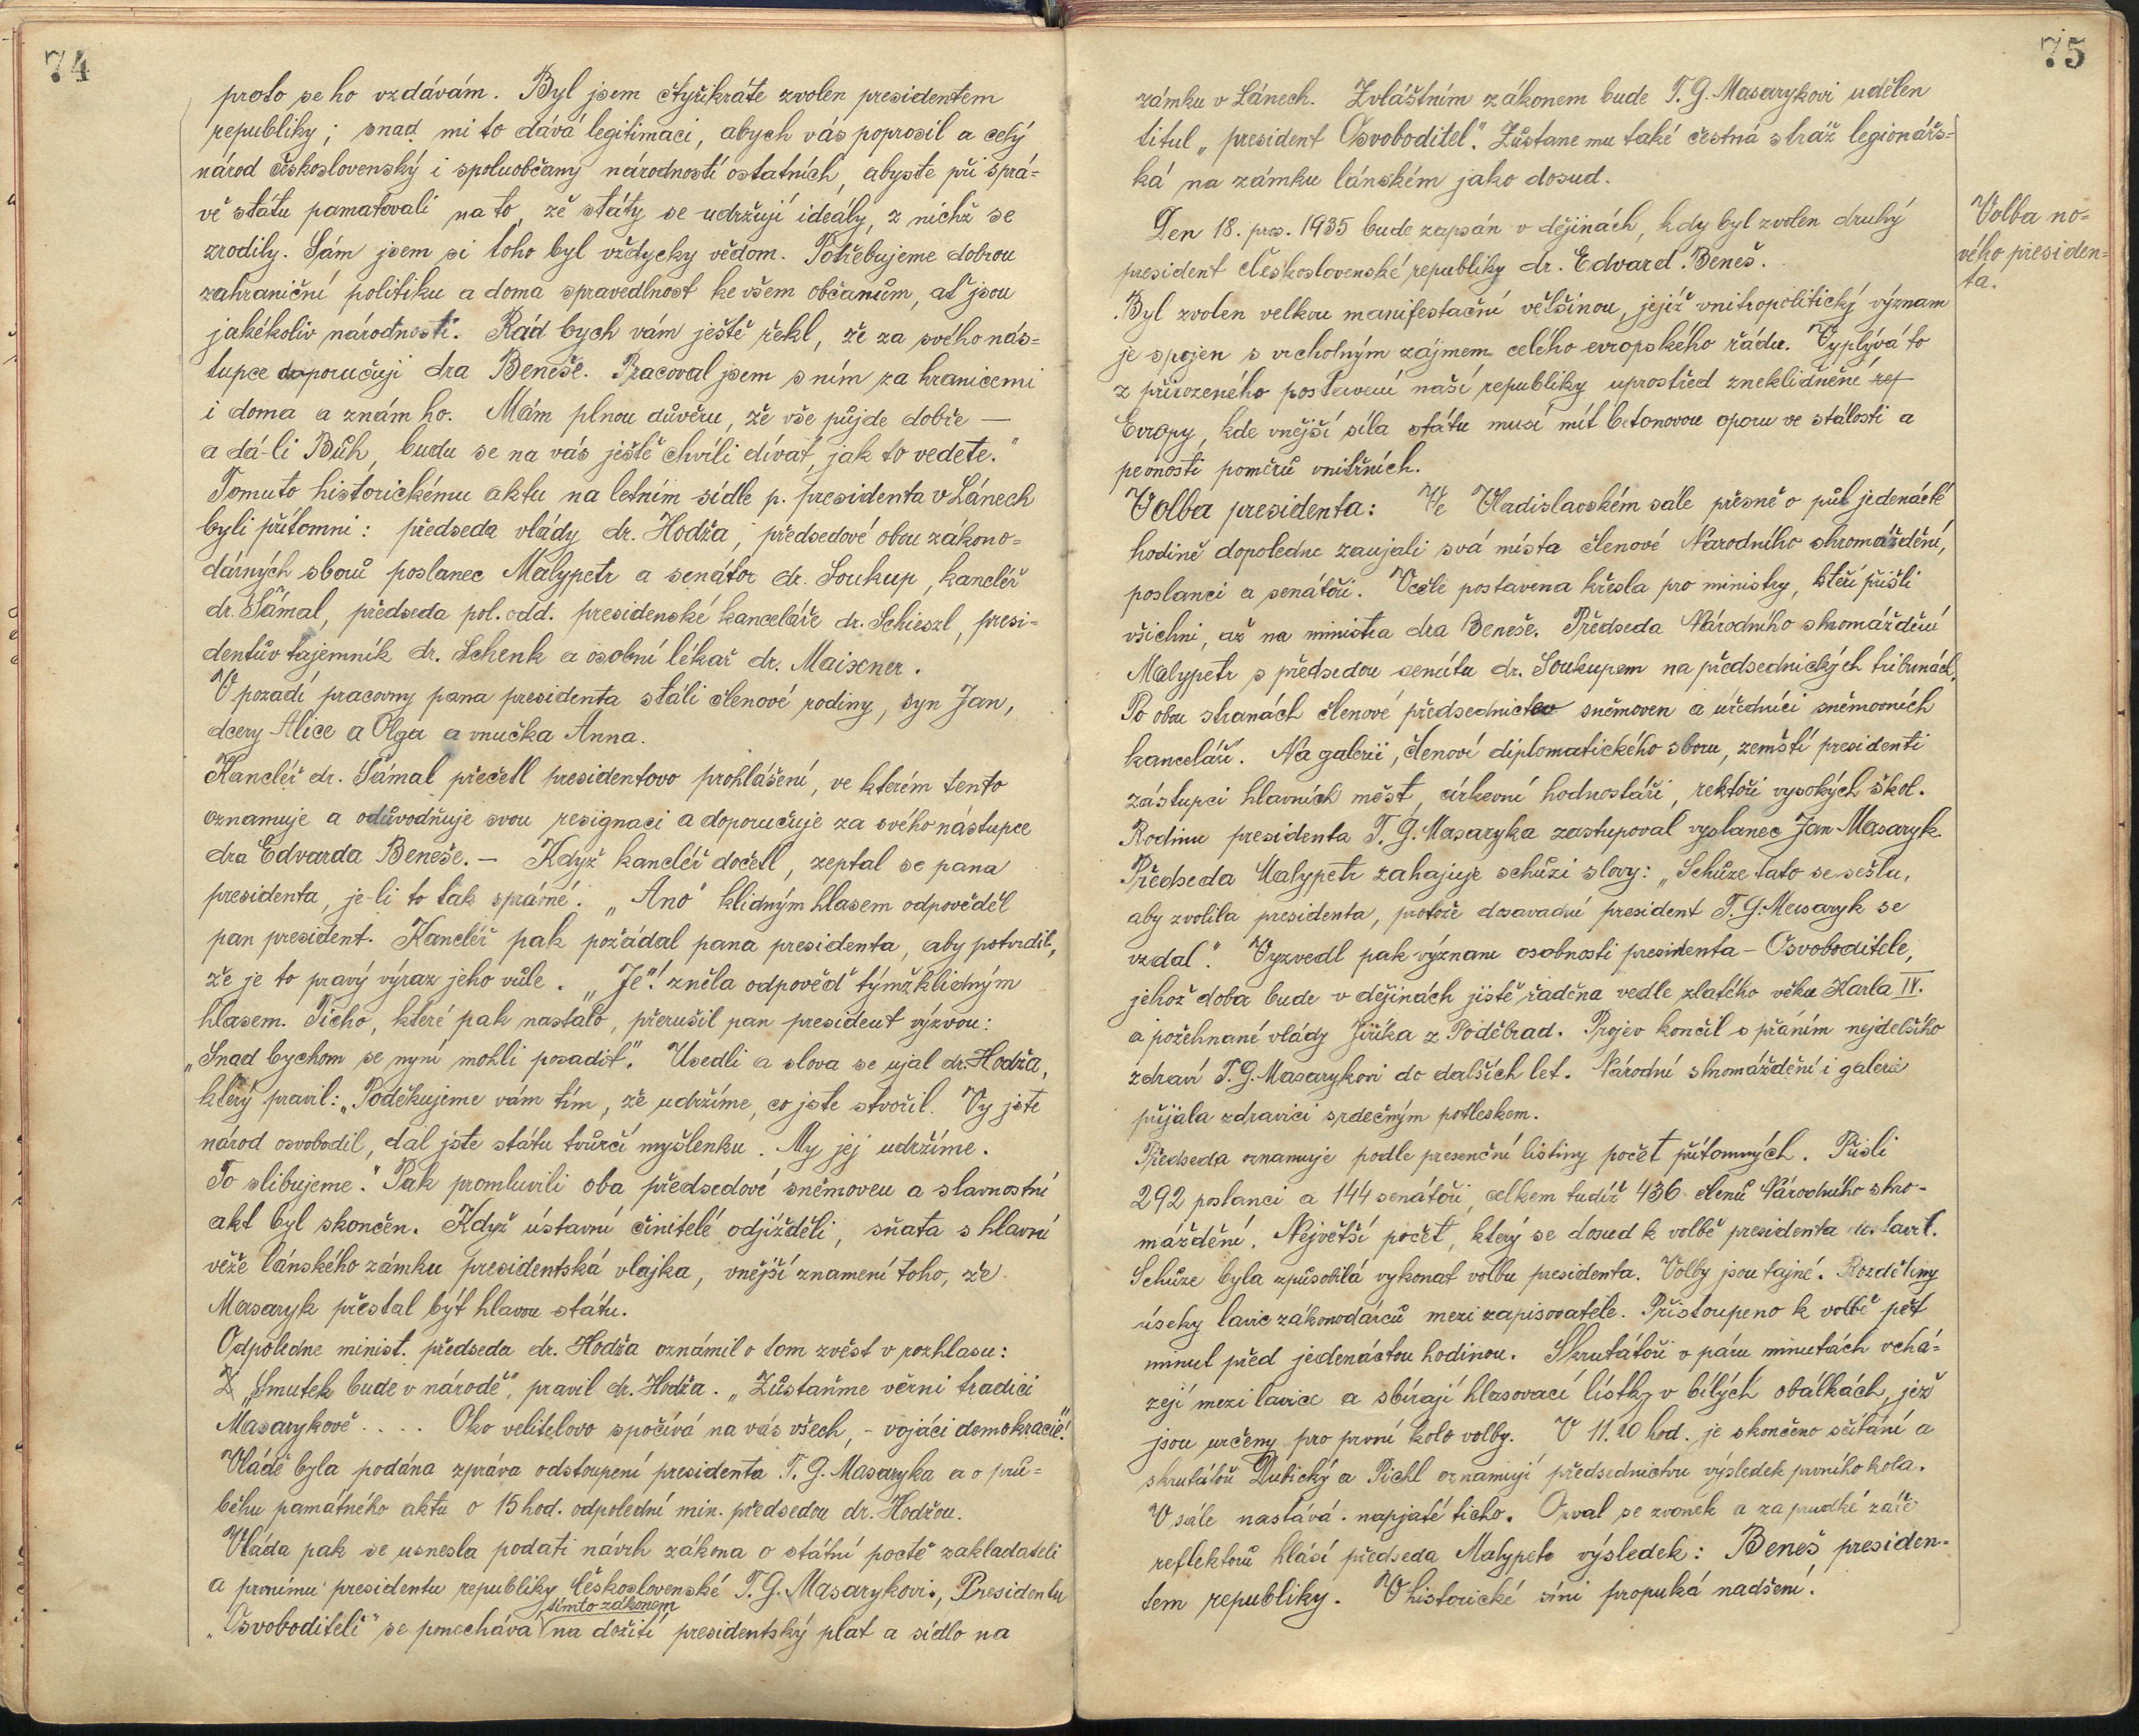 74
proto se ho vzdávám. Byl jsem čtyřikráte zvolen presidentem
republiky; snad mi to dává legitimaci, abych vás poprosil a celý
národ československý i spoluobčany národností ostatních, abyste při sprá-
vě státu pamatovali na to, že státy se udržují ideály, z nichž se
zrodily. Sám jsem si toho byl vždycky vědom. Potřebujeme dobrou
zahraniční politiku a doma spravedlnost ke všem občanům, ať jsou
jakékoliv národnosti. Rád bych vám ještě řekl, že za svého nás-
tupce doporučuji dra Beneše. Pracoval jsem s ním za hranicemi
i doma a znám ho. Mám plnou důvěru, že vše půjde dobře —
a dá-li Bůh, budu se na vás ještě chvíli dívat, jak to vedete."
Tomuto historickému aktu na letním sídle p. presidenta v Lánech
byli přítomni: předseda vlády dr. Hodža, předsedové obou zákono-
dárných sborů poslanec Malypetr a senátor dr. Soukup, kancléř
dr. Šámal, předseda pol. odd. presidenské kanceláře dr. Schieszl, presi-
dentův tajemník dr. Schenk a osobní lékař dr. Maixner.
V pozadí pracovny pana presidenta stáli členové rodiny, syn Jan,
dcery Alice a Olga a vnučka Anna.
Kancléř dr. Šámal přečetl presidentovo prohlášení, ve kterém tento
oznamuje a odůvodňuje svou resignaci a doporučuje za svého nástupce
dra Edvarda Beneše. — Když kancléř dočetl, zeptal se pana
presidenta, je-li to tak správné. „Ano" klidným hlasem odpověděl
pan president. Kancléř pak požádal pana presidenta, aby potvrdil,
že je to pravý výraz jeho vůle. „Je"! zněla odpověď týmž klidným
hlasem. Ticho, které pak nastalo, přerušil pan president výzvou:
„Snad bychom se nyní mohli posadit". Usedli a slova se ujal dr. Hodža,
který pravil: „Poděkujeme vám tím, že udržíme, co jste stvořil. Vy jste
národ osvobodil, dal jste státu tvůrčí myšlenku. My jej udržíme.
To slibujeme." Pak promluvili oba předsedové sněmoven a slavnostní
akt byl skončen. Když ústavní činitelé odjížděli, sňata s hlavní
věže lánského zámku presidentská vlajka, vnější znamení toho, že
Masaryk přestal být hlavou státu.
Odpoledne minist. předseda dr. Hodža oznámil o tom zvěst v rozhlasu:
Z „Smutek bude v národě", pravil dr. Hodža. „Zůstaňme věrni tradici
Masarykově .... Oko velitelovo spočívá na vás všech, - vojáci demokracie!"
Vládě byla podána zpráva odstoupení presidenta T. G. Masaryka a o prů-
běhu památného aktu o 15 hod. odpolední min. předsedou dr. Hodžou.
Vláda pak se usnesla podati návrh zákona o státní poctě zakladateli
a prvnímu presidentu republiky Československé T. G. Masarykovi, Presidentu
tímto zákonem
„Osvoboditeli" se ponechává na dožití presidentský plat a sídlo na
75
zámku v Lánech. Zvláštním zákonem bude T. G. Masarykovi udělen
titul „president Osvoboditel". Zůstane mu také čestná stráž legionářs-
ká na zámku lánském jako dosud.
Volba no-
vého presiden-
ta.
Den 18. pros. 1935 bude zapsán v dějinách, kdy byl zvolen druhý
president Československé republiky dr. Edvard Beneš.
Byl zvolen velkou manifestační většinou, jejíž vnitropolitický význam
je spojen s vrcholným zájmem celého evropského řádu. Vyplývá to
z přirozeného postavení naší republiky uprostřed zneklidněné ref
Evropy, kde vnější síla státu musí mít betonovou oporu ve stálosti a
pevnosti poměrů vnitřních.
Volba presidenta: Ve Vladislavském sále přesně o půl jedenácté
hodině dopoledne zaujali svá místa členové Národního shromáždění,
poslanci a senátoři. Včele postavena křesla pro ministry, kteří přišli
všichni, až na ministra dra Beneše. Předseda Národního shromáždění
Malypetr s předsedou senátu dr. Soukupem na předsednických tribunách.
Po obou stranách členové předsednictev sněmoven a úředníci sněmovních
kanceláří. Na galerii, členové diplomatického sboru, zemští presidenti
zástupci hlavních měst, církevní hodnostáři, rektoři vysokých škol.
Rodinu presidenta T. G. Masaryka zastupoval vyslanec Jan Masaryk.
Předseda Malypetr zahajuje schůzi slovy: „Schůze tato se sešla,
aby zvolila presidenta, protože dosavadní president T. G. Masaryk se
vzdal". Vyzvedl pak význam osobnosti presidenta - Osvoboditele,
jehož doba bude v dějinách jistě řaděna vedle zlatého věku Karla IV.
a požehnané vlády Jiříka z Poděbrad. Projev končil s přáním nejdelšího
zdraví T. G. Masarykovi do dalších let. Národní shromáždění i galerie
přijala zdravici srdečným potleskem.
Předseda oznamuje podle presenční listiny počet přítomných. Přišli
292 poslanci a 144 senátoři, celkem tudíž 436 členů Národního shro-
máždění. Největší počet, který se dosud k volbě presidenta dostavil.
Schůze byla způsobilá vykonat volbu presidenta. Volby jsou tajné. Rozděleny
úseky lavic zákonodárců mezi zapisovatele. Přistoupeno k volbě pět
minut před jedenáctou hodinou. Skrutátoři v páru minutách vchá-
zejí mezi lavice a sbírají hlasovací lístky v bílých obálkách, jež
jsou určeny pro první kolo volby. V 11.20 hod. je skončeno sčítání a
skrutátoři Dubický a Pichl oznamují předsednictvu výsledek prvního kola.
V sále nastává napjaté ticho. Ozval se zvonek a za prudké záře
reflektorů hlásí předseda Malypetr výsledek: Beneš presiden-
tem republiky. V historické síni propuká nadšení.